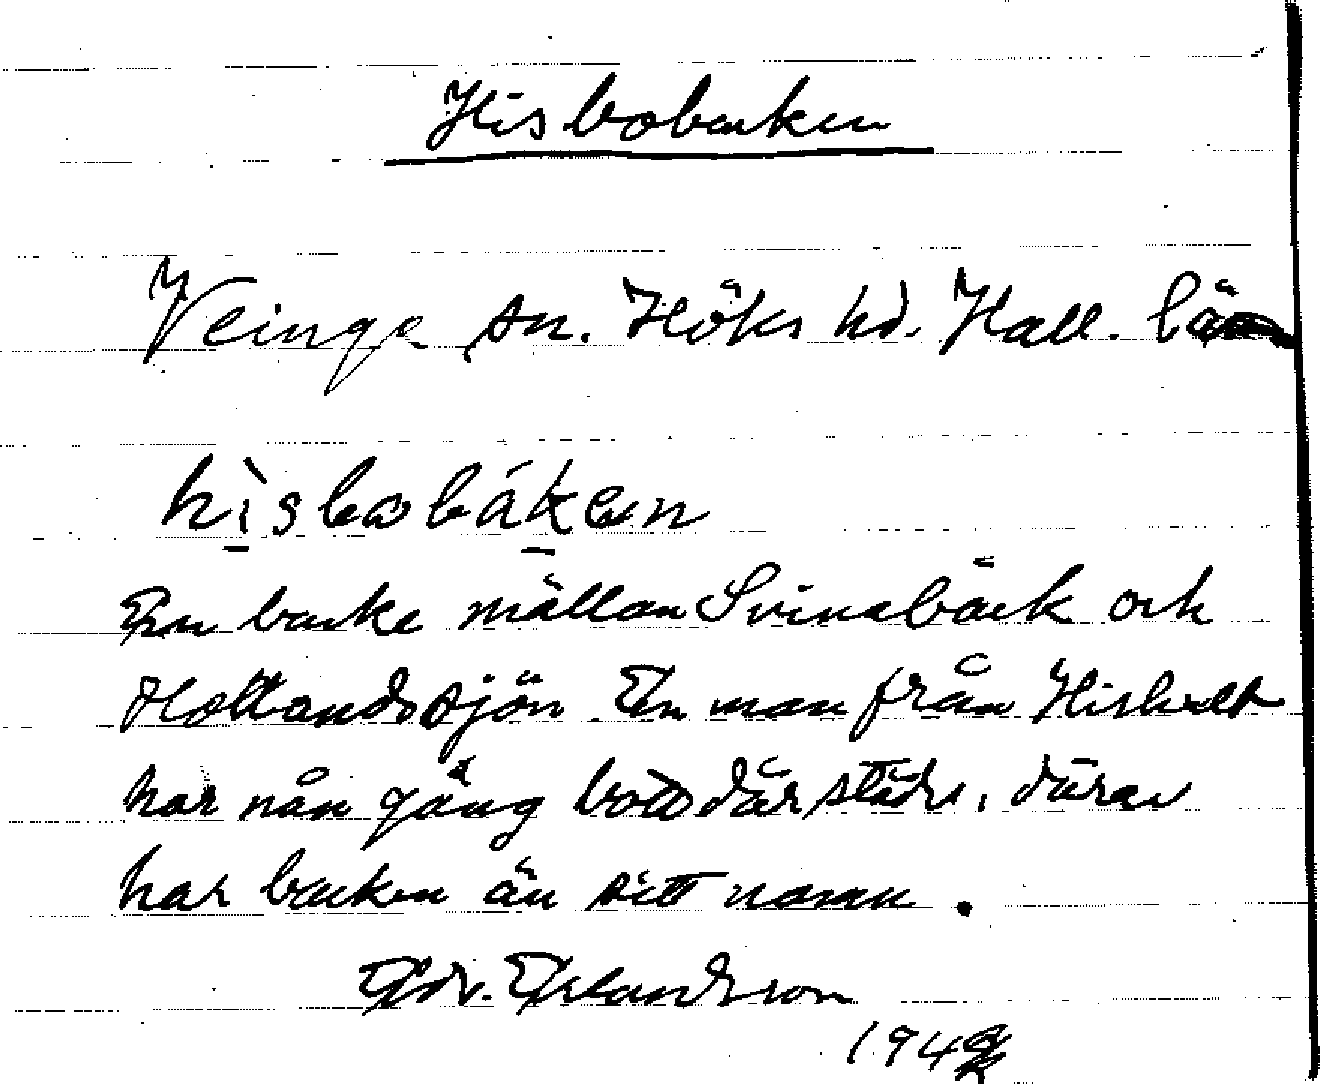 Hisbobacken
Veinge sn. Höks hd. Hall. län
hìsbobákən
En backe mällan Svinabäck och
Hollandssjön En man från Hishult
har nån gång bott där städes, därav
har backen än sitt namn.
Edv. Erlandsson